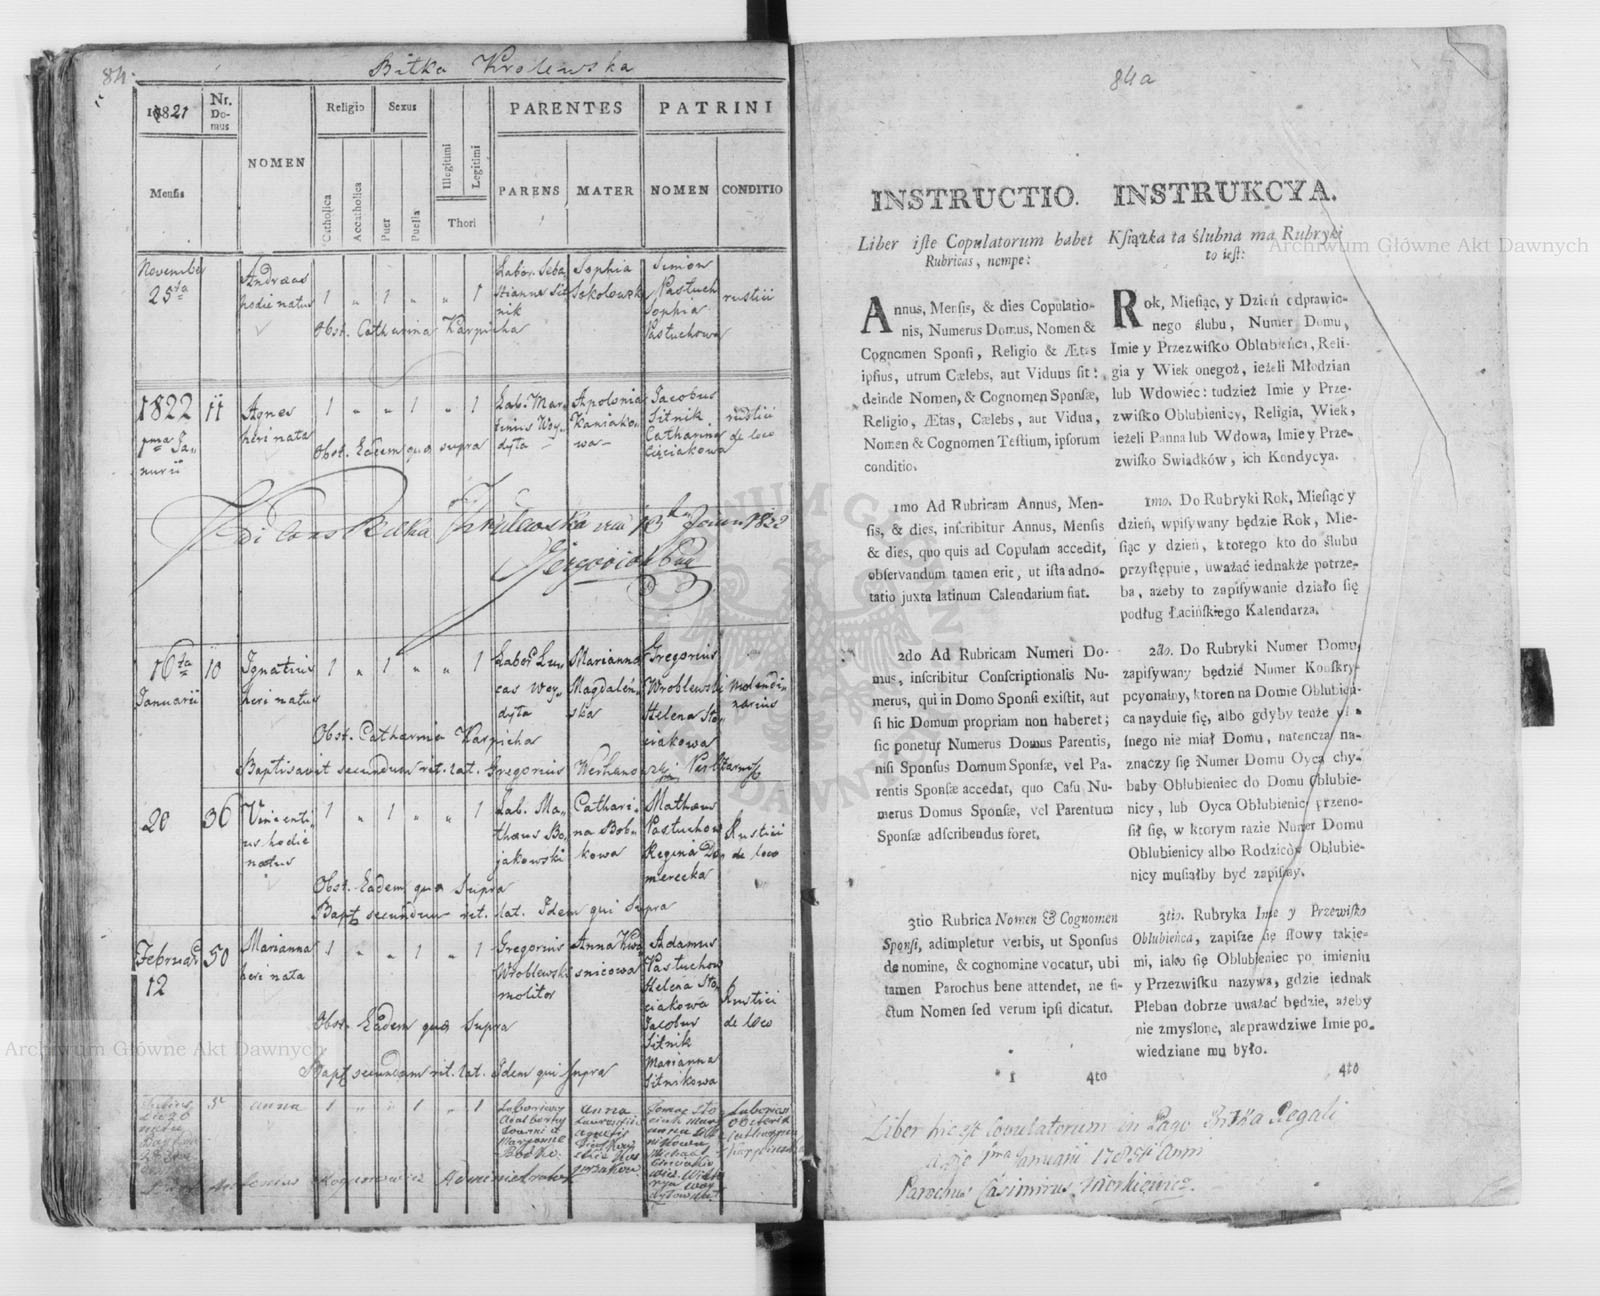 84.
Bitka Krolewska
1821
Nr. Domus
NOMEN
Religio
Sexus
PARENTES
PATRINI
Mensis
Catholica
Accatholica
Puer
Puella
Illegitimi
Legitimi
Thori
PARENS
MATER
NOMEN
CONDITIO
November
25ta
Andreas
hodie natus
1 " 1 " " 1
Labor. Seba-
stianus Sit-
nik
Sophia
Sokolowska
Simion
Pastuch
Sophia
Pastuchowa
rustici
Obst. Catharina Karpicha
1822
1ma Ja-
nuarii
11
Agnes
heri nata
1 " " 1 " 1
Lab. Mar-
tinus Woy-
dyta
Apolonia
Kaniako-
wa
Jacobus
Sitnik
Catharina
Cięciakowa
rustici
de loco
Obst. Eadem qua supra
13 1822
16ta
Januarii
10
Ignatius
heri natus
1 " 1 " " 1
Labor Lu-
cas Woy-
dyta
Marianna
Magdaleń-
ska
Gregorius
Wroblewski
Helena Sto-
ciakowa
molendi-
narius
Obst. Catharina Karpicha
Baptisavit secundum rit. lat. Gregorius
20
36
Vincenti-
us hodie
natus
1 " 1 " " 1
Lab. Ma-
thaeus Bo-
jakowski
Cathari-
na Bob-
kowa
Mathaeus
Pastuchow
Regina Do-
merecka
Rustici
de loco
Obst. Eadem qua Supra
Bapt secundum rit. lat. Idem qui Supra
Februar
12
50
Marianna
heri nata
1 " " 1 " 1
Gregorius
Wroblewski
molitor
Anna Kwa-
snicowa
Adamus
Pastuchow
Helena Sto-
ciakowa
Jacobus
Sitnik
Marianna
Sitnikowa
Rustici
de loco
Obst. Eadem qua Supra
Bapt secundum rit. lat. Idem qui Supra
Anna
1 " " 1 " 1
Anna
Antonius Administrator
84a
INSTRUCTIO.
Liber iste Copulatorum habet
Rubricas, nempe:
Annus, Mensis, & dies Copulatio-
nis, Numerus Domus, Nomen &
Cognomen Sponsi, Religio & Ætas
ipsius, utrum Cælebs, aut Viduus sit:
deinde Nomen, & Cognomen Sponsæ,
Religio, Ætas, Cælebs, aut Vidua,
Nomen & Cognomen Testium, ipsorum
conditio.
1mo Ad Rubricam Annus, Men-
sis, & dies, inscribitur Annus, Mensis
& dies, quo quis ad Copulam accedit,
observandum tamen erit, ut ista adno-
tatio juxta latinum Calendarium fiat.
2do Ad Rubricam Numeri Do-
mus, inscribitur Conscriptionalis Nu-
merus, qui in Domo Sponsi existit, aut
si hic Domum propriam non haberet;
sic ponetur Numerus Domus Parentis,
nisi Sponsus Domum Sponsæ, vel Pa-
rentis Sponsæ accedat, quo Casu Nu-
merus Domus Sponsæ, vel Parentum
Sponsæ adscribendus foret.
3tio Rubrica Nomen & Cognomen
Sponsi, adimpletur verbis, ut Sponsus
de nomine, & cognomine vocatur, ubi
tamen Parochus bene attendet, ne fi-
ctum Nomen sed verum ipsi dicatur.
1 4to
INSTRUKCYA.
Książka ta ślubna ma Rubryki
to iest:
Rok, Miesiąc, y Dzień odprawio-
nego ślubu, Numer Domu,
Imie y Przezwisko Oblubieńca, Reli-
gia y Wiek onegoż, ieżeli Młodzian
lub Wdowiec: tudzież Imie y Prze-
zwisko Oblubienicy, Religia, Wiek,
ieżeli Panna lub Wdowa, Imie y Prze-
zwisko Swiadków, ich Kondycya.
1mo. Do Rubryki Rok, Miesiąc y
dzień, wpisywany będzie Rok, Mie-
siąc y dzień, ktorego kto do ślubu
przystępuie, uważać iednakże potrze-
ba, ażeby to zapisywanie działo się
podług Łacińskiego Kalendarza.
2do. Do Rubryki Numer Domu,
zapisywany będzie Numer Konskry-
pcyonalny, ktoren na Domie Oblubień-
ca nayduie się, albo gdyby tenże wła-
snego nie miał Domu, natenczas na-
znaczy się Numer Domu Oyca chy-
baby Oblubieniec do Domu Oblubie-
nicy, lub Oyca Oblubienicy przeno-
sił się, w ktorym razie Numer Domu
Oblubienicy albo Rodziców Oblubie-
nicy musiałby być zapisany.
3tio. Rubryka Imie y Przezwisko
Oblubieńca, zapisze się słowy takie-
mi, iako się Oblubieniec po imieniu
y Przezwisku nazywa, gdzie iednak
Pleban dobrze uważać będzie, ażeby
nie zmyslone, ale prawdziwe Imie po-
wiedziane mu było.
4to
Liber hic est Copulatorum in Pago Bitka Regali
a die 1ma Januarii 1785ti Anni
Parochus Casimirus
Archiwum Główne Akt Dawnych
Archiwum Główne Akt Dawnych